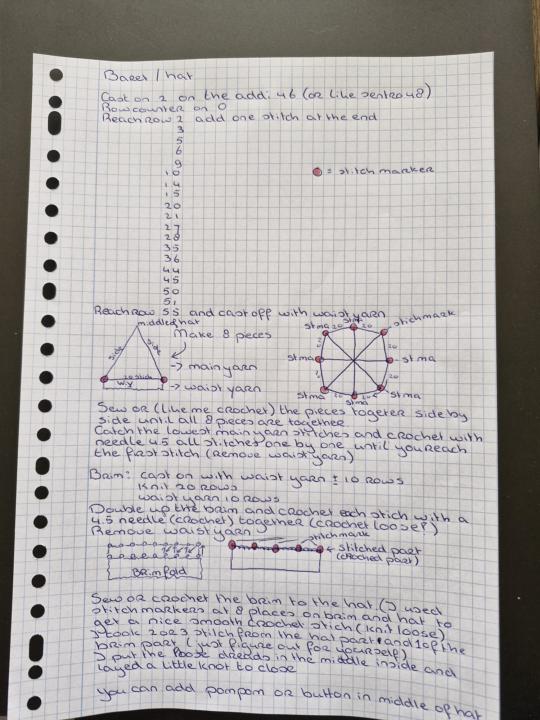 Baret / hat
Cast on 2 on the addi 46 (or like sentro 48)
Rowcounter on 0
Reach row 2 add one stitch at the end
3
5
6
9
10
= stitch marker
14
15
20
21
27
28
35
36
44
45
50
51
Reach row 55 and cast off with waist yarn
middle of hat
Make 8 peces
side
side
→ main yarn
20 stich
W.Y
→ waist yarn
stma
stichmark
stma
20
20
20
20
20
20
stma
stma
stma
stma
stma
Sew or (like me crochet) the pieces togeter side by
side until all 8 pieces are together
Catch the lowest main yarn stitches and crochet with
needle 4.5 all stitches one by one until you reach
the first stitch (remove waist yarn)
Brim: cast on with waist yarn ± 10 rows
Knit 20 rows
waist yarn 10 rows
Double up the brim and crochet each stich with a
4.5 needle (crochet) together (crochet loose!)
Remove waist yarn
stitchmark
← stitched part
(croched part)
Brim fold
Sew or crochet the brim to the hat. (I used
stitchmarkers at 8 places on brim and hat to
get a nice smooth crochet stich (knit loose)
I took 2 or 3 stitch from the hat part and 1 of the
brim part (just figure out for yourself)
I put the loose dredds in the middle inside and
layed a little knot to close
you can add pompom or button in middle of hat